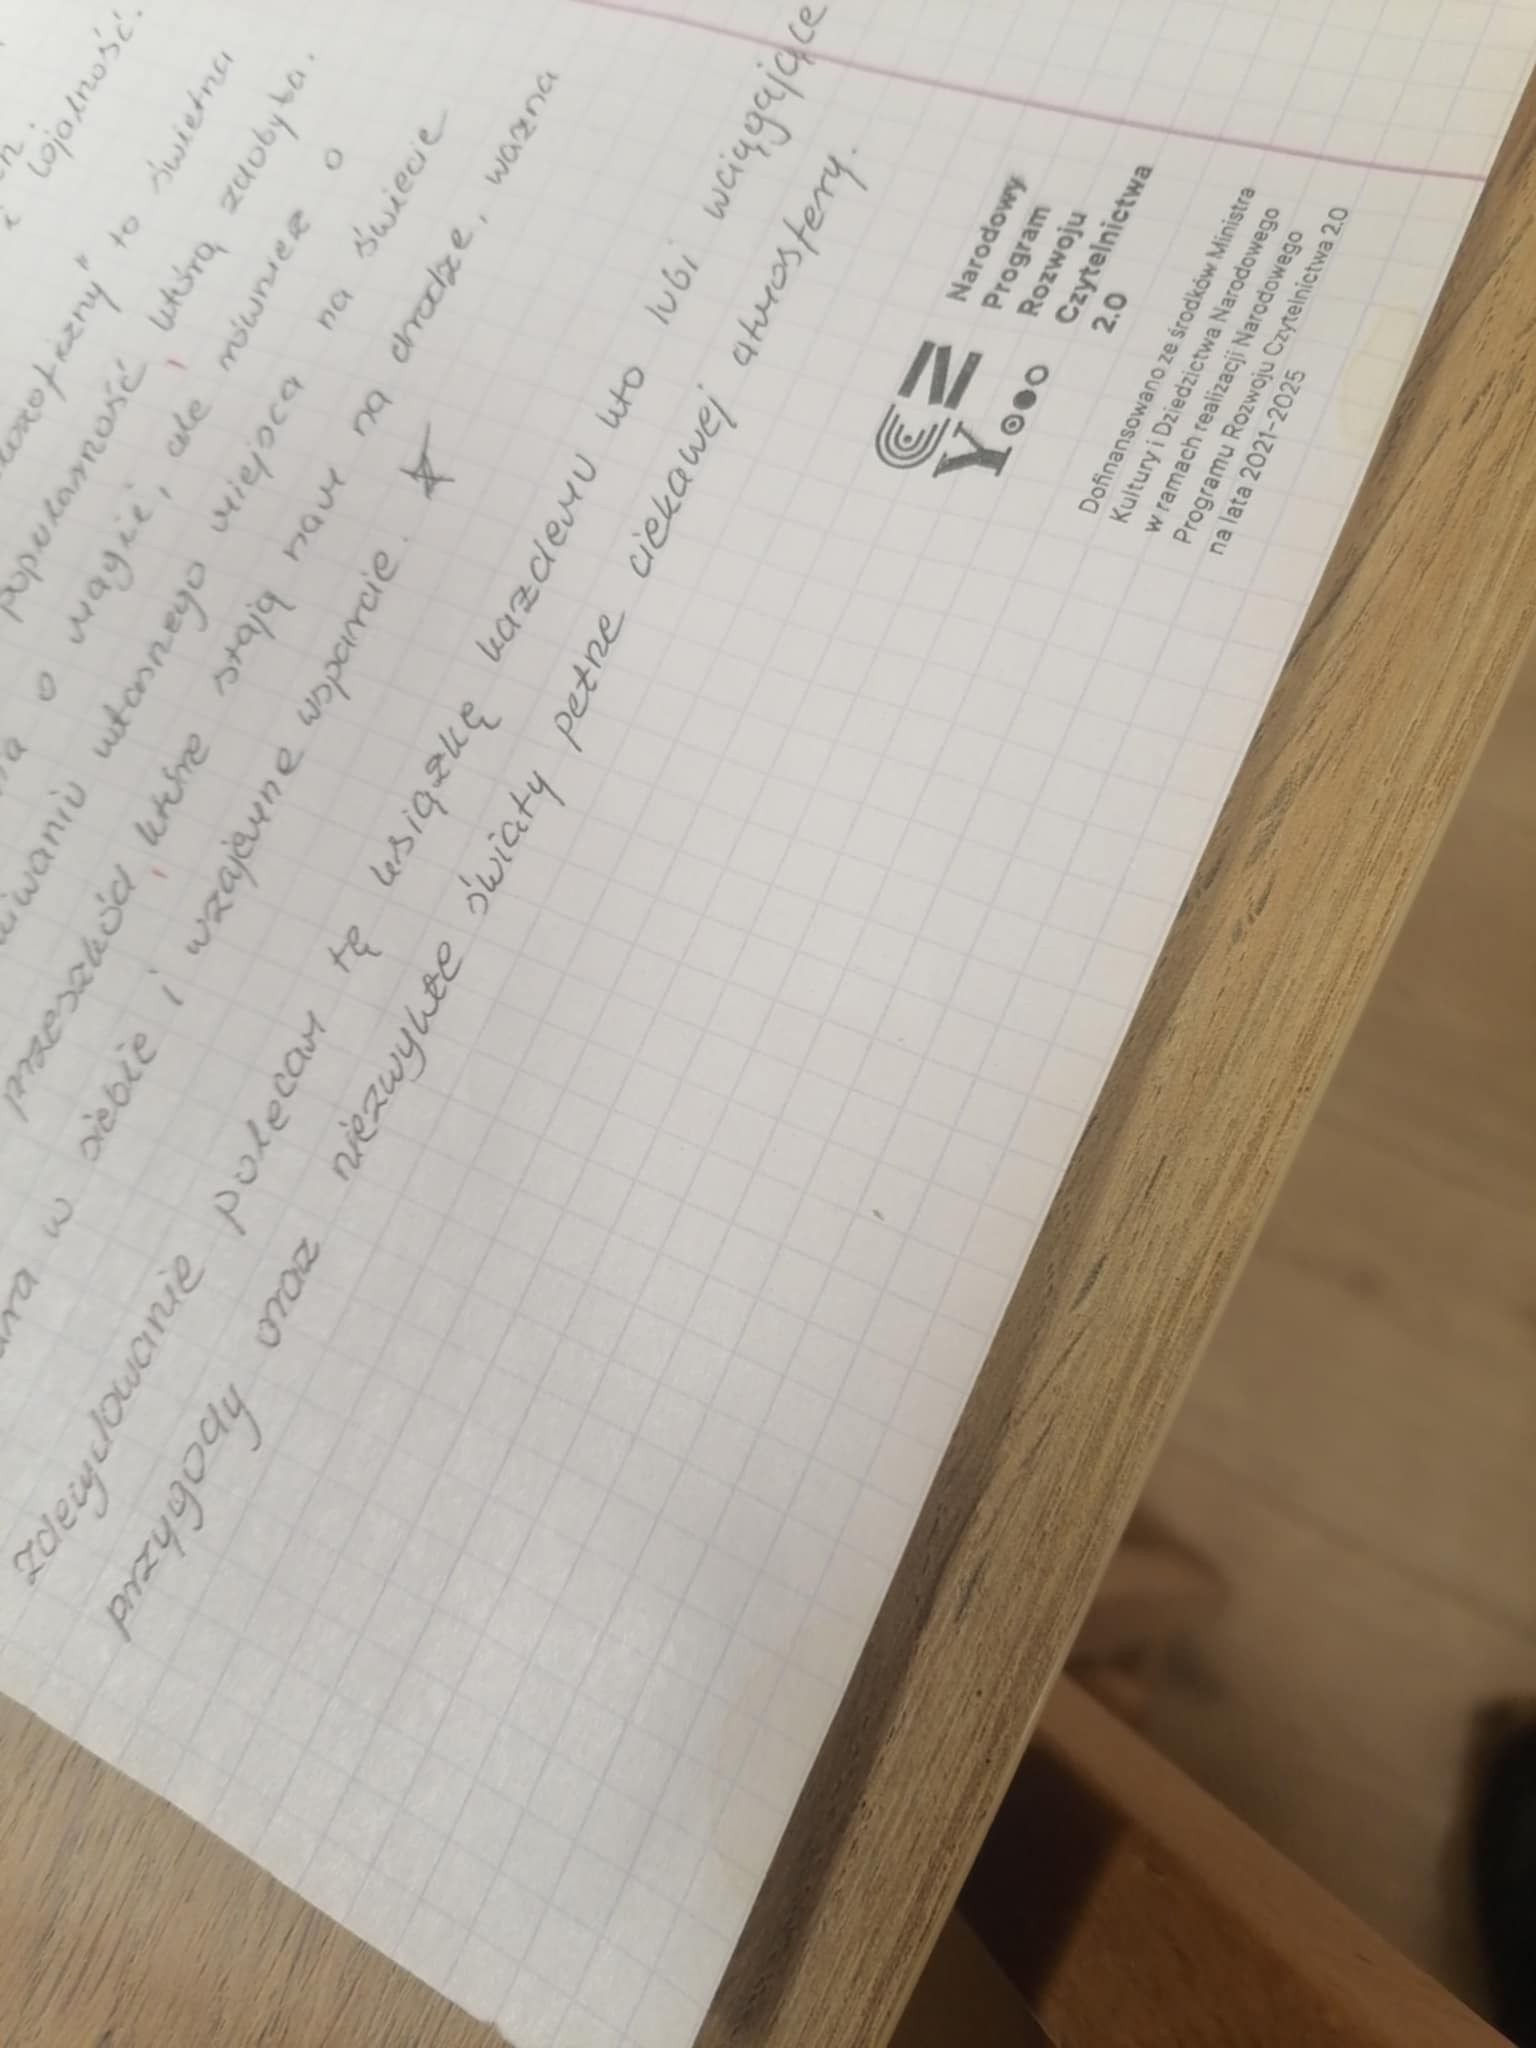 i lojalność.
to świetna
popularność którą zdobyła.
o magii, ale również o
własnego miejsca na świecie
przeszkód które stają nam na drodze, ważna
w siebie i wzajemne wsparcie.
zdecydowanie polecam tę książkę każdemu kto lubi wciągające
przygody oraz niezwykłe światy pełne ciekawej atmosfery.
CZY
Narodowy
Program
Rozwoju
Czytelnictwa
2.0
Dofinansowano ze środków Ministra
Kultury i Dziedzictwa Narodowego
w ramach realizacji Narodowego
Programu Rozwoju Czytelnictwa 2.0
na lata 2021-2025